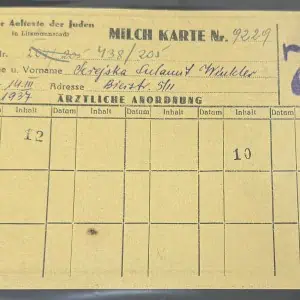 r Aelteste der Juden
in Litzmannstadt
MILCH KARTE Nr. 9229
Nr. 438/205
e u. Vorname Sulamit Winkler
14.III Adresse Bierstr. 5/11
1937 ÄRZTLICHE ANORDNUNG
Inhalt Datum Inhalt Datum Inhalt Datum Inhalt Datum Inhalt
12 10